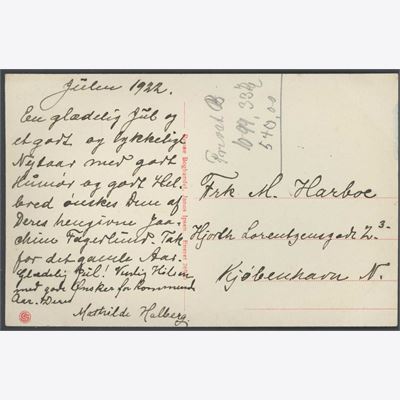 Julen 1922.
En glædelig Jul og
et godt og lykkeligt
Nytaar med godt
Humør og godt Hel-
bred ønskes Dem af
Deres hengivne Joa-
chim Fagerlund. Tak
for det gamle Aar.
glædelig Jul! Venlig Hilsen
med gode Ønsker for kommende
Aar. Deres
Mathilde Halberg.
Boghandel, Jonas
Eneret
1099, 33
540,00
Frk M. Harboe
Hjorth Lorentzensgade 2 3.
Kjøbenhavn N.